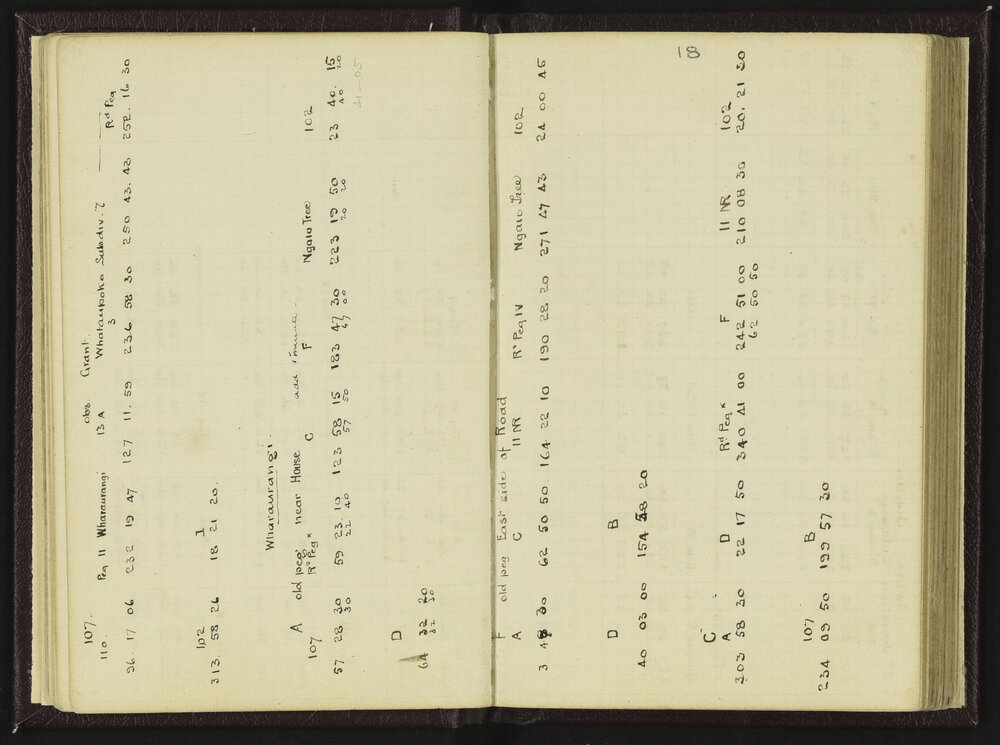 107. obs Grant.
110 Peg 11 Wharaurangi 13 A Whataupoko Subdiv. 7 Rd Peg
3
96. 17 06 232 19 47 127 11. 59 236 58 30 250 43. 43 252. 16 30
102 1
313. 58 26 18 21 20.
Wharaurangi.
A old peg near House add 1 minute
107 Rd Peg x C F Ngaio Tree 102
57 28 30 59 23. 10 123 58 15 183 47 30 223 19 50 23 40. 15
30 22 40 57 50 47 00 20 20 40 20
41-05
D
64 32 20
32 30
F old peg East side of Road
A C 11 NR Rd Peg IV Ngaio Tree 102
3 48 30 62 50 50. 164. 22 10 190 28 20 271 47 43 24 00 45
D B
40 03 00 154 38 20
18
C
A D Rd Peg x F 11 NR 102
303 58 30 22 17 50 340 41 00 242 51 00 210 08 30 20. 21 30
62 50 50
107 B
234 09 50 199 57 30